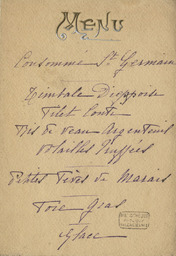 MENU
Consommé St Germain
Timbale Dieppoise
Filet Conti
Ris de Veau Argenteuil
Volailles Truffées
Petites Fèves de Marais
Foie Gras
Glace